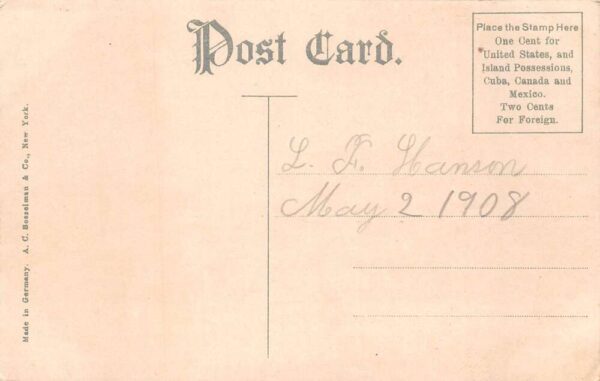 Post Card.
Place the Stamp Here
One Cent for
United States, and
Island Possessions,
Cuba, Canada and
Mexico.
Two Cents
For Foreign.
L. F. Hanson
May 2 1908
Made in Germany. A. C. Bosselman & Co., New York.